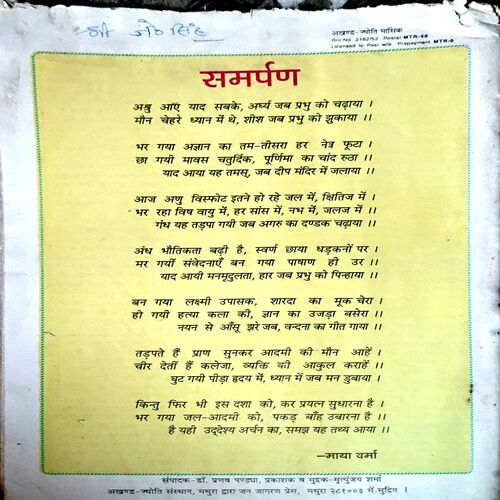 श्री जय सिंह
अखण्ड-ज्योति मासिक
Rni No 2162/52 Postal MTR-98
Licensed to Post w/o Prepayment MTR-9
समर्पण
अश्रु आएं याद सबके, अर्घ्य जब प्रभु को चढ़ाया ।
मौन चेहरे ध्यान में थे, शीश जब प्रभु को झुकाया ।।
भर गया अज्ञान का तम-तीसरा हर नेत्र फूटा ।
छा गयी मावस चतुर्दिक, पूर्णिमा का चांद रूठा ।।
याद आया यह तमस्, जब दीप मंदिर में जलाया ।।
आज अणु विस्फोट इतने हो रहे जल में, क्षितिज में ।
भर रहा विष वायु में, हर सांस में, नभ में, जलज में ।।
गंध यह तड़पा गयी जब अगरु का दण्डक चढ़ाया ।।
अंध भौतिकता बढ़ी है, स्वर्ण छाया धड़कनों पर ।
मर गयीं संवेदनाएँ बन गया पाषाण ही उर ।।
याद आयी मनमृदुलता, हार जब प्रभु को पिन्हाया ।।
बन गया लक्ष्मी उपासक, शारदा का मूक चेरा ।
हो गयी हत्या कला की, ज्ञान का उजड़ा बसेरा ।।
नयन से आँसू झरे जब, वन्दना का गीत गाया ।।
तड़पते हैं प्राण सुनकर आदमी की मौन आहें ।
चीर देतीं हैं कलेजा, व्यक्ति की आकुल कराहें ।।
घुट गयी पीड़ा हृदय में, ध्यान में जब मन डुबाया ।
किन्तु फिर भी इस दशा को, कर प्रयत्न सुधारना है ।
भर गया जल-आदमी को, पकड़ बाँह उबारना है ।।
है यही उद्देश्य अर्चन का, समझ यह तथ्य आया ।।
—माया वर्मा
संपादक-डॉ. प्रणव पण्ड्या, प्रकाशक व मुद्रक-मृत्युंजय शर्मा
अखण्ड-ज्योति संस्थान, मथुरा द्वारा जन जागरण प्रेस, मथुरा २८१००३ में मुद्रित ।